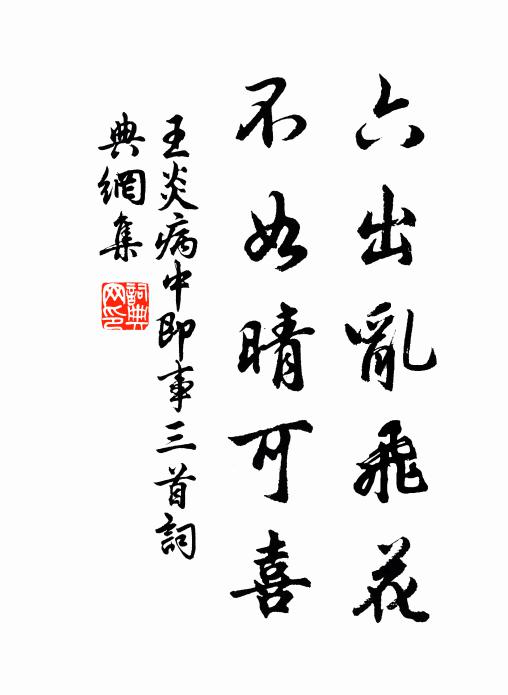 六出亂飛花
不如晴可喜
王炎病中即事三首詞
典網集
詞典
网印